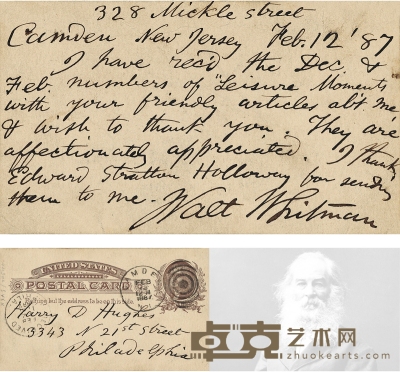 328 Mickle street
Camden New Jersey Feb. 12 '87
I have rec'd the Dec. &
Feb. numbers of "Leisure Moments"
with your friendly articles ab't me
& wish to thank you. They are
affectionately appreciated. I thank
Edward Stratton Holloway for sending
them to me. Walt Whitman
UNITED STATES
POSTAL CARD
Nothing but the address to be on this side.
Harry D Hughes
3343 N 21st Street
Philadelphia
FEB
1887
卓克艺术网
zhuokearts.com